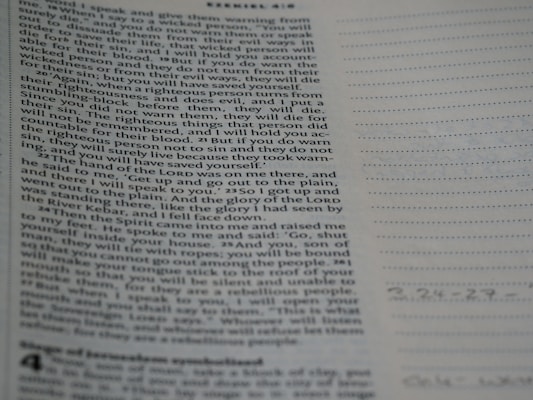 EZEKIEL 4:6
word I speak and give them warning from
me. 18 When I say to a wicked person, "You will
surely die," and you do not warn them or speak
out to dissuade them from their evil ways in
order to save their life, that wicked person will
die for their sin, and I will hold you account-
able for their blood. 19 But if you do warn the
wicked person and they do not turn from their
wickedness or from their evil ways, they will die
for their sin; but you will have saved yourself.
20 'Again, when a righteous person turns from
their righteousness and does evil, and I put a
stumbling-block before them, they will die.
Since you did not warn them, they will die for
their sin. The righteous things that person did
will not be remembered, and I will hold you ac-
countable for their blood. 21 But if you do warn
the righteous person not to sin and they do not
sin, they will surely live because they took warn-
ing, and you will have saved yourself.'
22 The hand of the LORD was on me there, and
he said to me, 'Get up and go out to the plain,
and there I will speak to you.' 23 So I got up and
went out to the plain. And the glory of the LORD
was standing there, like the glory I had seen by
the River Kebar, and I fell face down.
24 Then the Spirit came into me and raised me
to my feet. He spoke to me and said: 'Go, shut
yourself inside your house. 25 And you, son of
man, they will tie with ropes; you will be bound
so that you cannot go out among the people. 26 I
will make your tongue stick to the roof of your
mouth so that you will be silent and unable to
rebuke them, for they are a rebellious people.
27 But when I speak to you, I will open your
mouth and you shall say to them, "This is what
the Sovereign LORD says." Whoever will listen
let them listen, and whoever will refuse let them
refuse; for they are a rebellious people.
Siege of Jerusalem symbolised
4 'Now, son of man, take a block of clay, put
it in front of you and draw the city of Jeru-
3.24-27 -